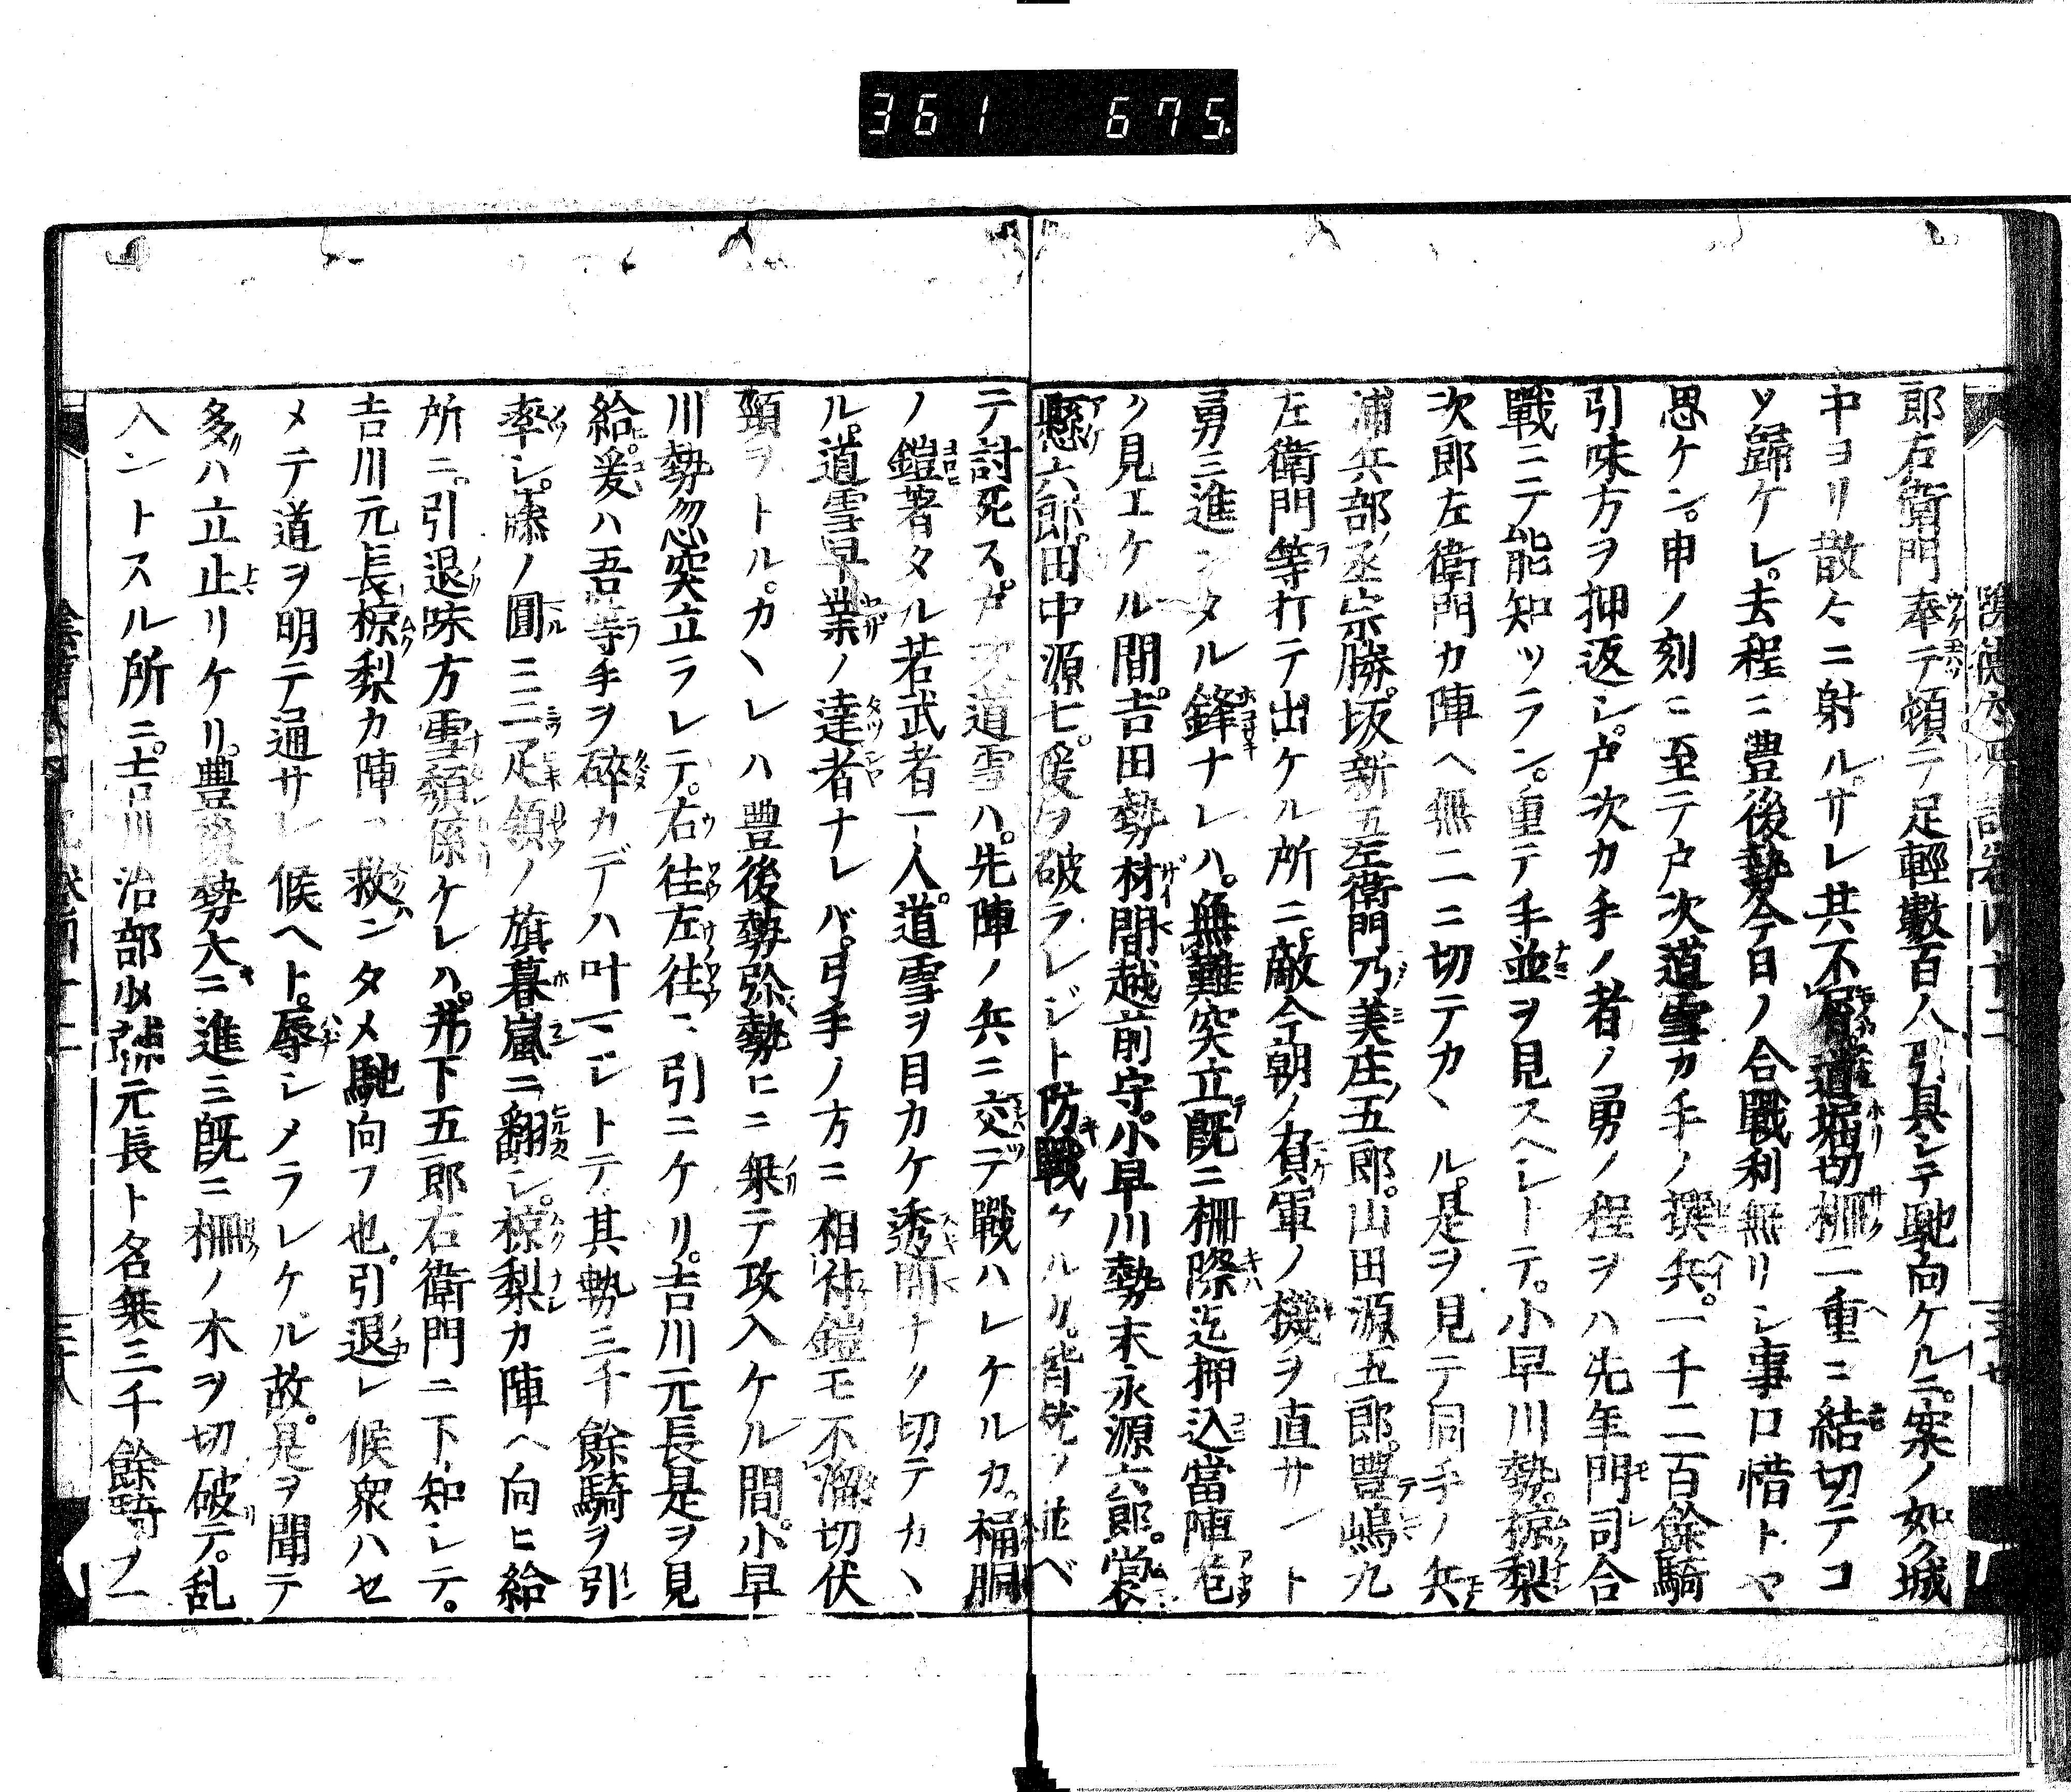 361 675
郎右衛門奉テ頓テ足輕數百人引具シテ馳向ケルニ。案ノ如ク城
中ヨリ散々ニ射ル。サレ共不屑道堀切柵二重ニ結切テコ
ソ歸ケレ。去程ニ豊後勢今日ノ合戰利無リシ事口惜トヤ
思ケン。申ノ刻ニ至テ戸次道雪カ手ノ撰兵。一千二百餘騎
引味方ヲ押返シ。戸次カ手ノ者ノ勇ノ程ヲハ先年門司合
戰ニテ能知ツラン。重テ手並ヲ見スヘレトテ。小早川勢。椋梨
次郎左衛門カ陣ヘ無二ニ切テカヽル。是ヲ見テ同手ノ兵
浦兵部丞宗勝。坂新五左衛門乃美庄五郎。山田源五郎。豊嶋九
左衛門等打テ出ケル所ニ。敵今朝ノ負軍ノ機ヲ直サント
勇ミ進ンタル鋒ナレハ。無難突立既ニ柵際迄押込當陣危
ク見エケル間。吉田勢材間越前守。小早川勢末永源六郎。裳
懸六郎。田中源七。爰ヲ破ラレジト防戰ケルカ。皆枕ヲ並ベ
テ討死ス。戸次道雪ハ。先陣ノ兵ニ交テ戰ハレケルカ。桶胴
ノ鎧著タル若武者一人。道雪ヲ目カケ透間ナク切テカヽ
ル。道雪早業ノ達者ナレバ。弓手ノ方ニ相付鎧モ不溜切伏
頸ヲトル。カヽレハ豊後勢弥勢ヒニ乗テ攻入ケル間。小早
川勢忽突立ラレテ。右往左往ニ引ニケリ。吉川元長是ヲ見
給。爰ハ吾等手ヲ碎カデハ叶マシトテ其勢三千餘騎ヲ引
率シ。藤ノ圓ニ三疋領ノ旗暮嵐ニ翻シ。椋梨カ陣ヘ向ヒ給
所ニ。引退味方雪頽係ケレハ。井下五郎右衛門ニ下知シテ。
吉川元長椋梨カ陣ヲ救ンタメ馳向フ也。引退レ候衆ハセ
メテ道ヲ明テ通サレ候ヘト。辱シメラレケル故。是ヲ聞テ
多ハ立止リケリ。豊後勢大ニ進ミ既ニ柵ノ木ヲ切破テ。乱
入ントスル所ニ。吉川治部少輔元長ト名乗三千餘騎ヲ一